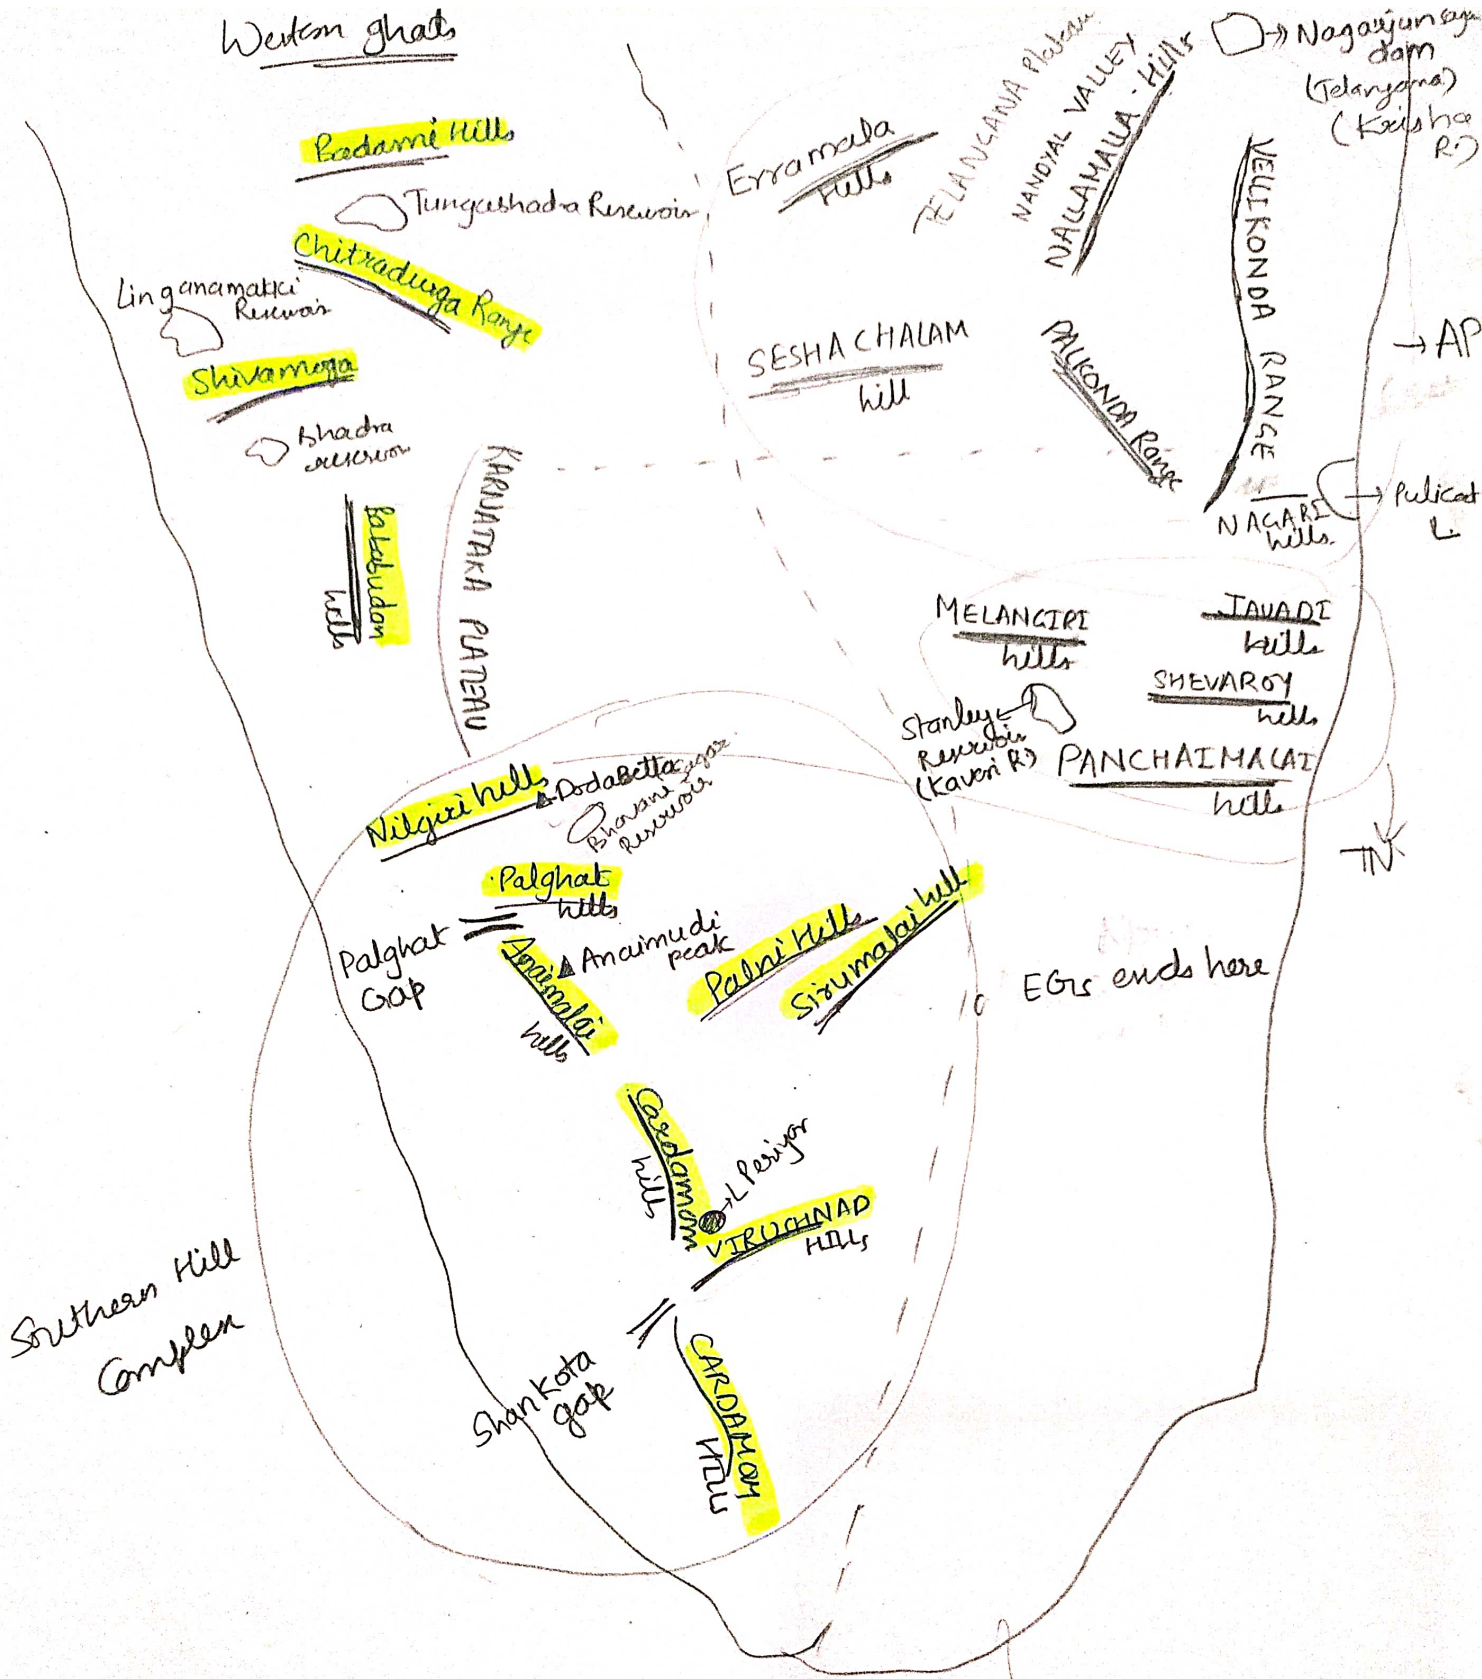 Western ghats
Badami Hills
Tungabhadra Reservoir
Chitradurga Range
Linganamakki
Reservoir
Shivamoga
Bhadra
reservoir
Bababudan
hills
KARNATAKA PLATEAU
Erramala
Hills
TELANGANA Plateau
NANDYAL VALLEY
NALLAMALLA - Hills
Nagarjunsagar
dam
(Telangana)
(Krisha
R.)
VELLIKONDA RANGE
SESHACHALAM
hill
PALKONDA Range
AP
NAGARI
hills.
Pulicat
L.
MELANGIRI
hills
JAVADI
hills
SHEVAROY
hills
Stanley
Reservoir
(Kaveri R)
PANCHAIMALAI
hills
TN
Nilgiri hills
DodaBetta
Bhavani Sagar
Reservoir
Palghat
hills
Palghat
Gap
Anaimalai
hills
Anaimudi
peak
Palni Hills
Sirumalai hill
EGs ends here
Cardamom
hills
L Periyar
VIRUCHNAD
HILLs
Southern Hill
Complex
Shankota
gap
CARDAMOM
HILLs